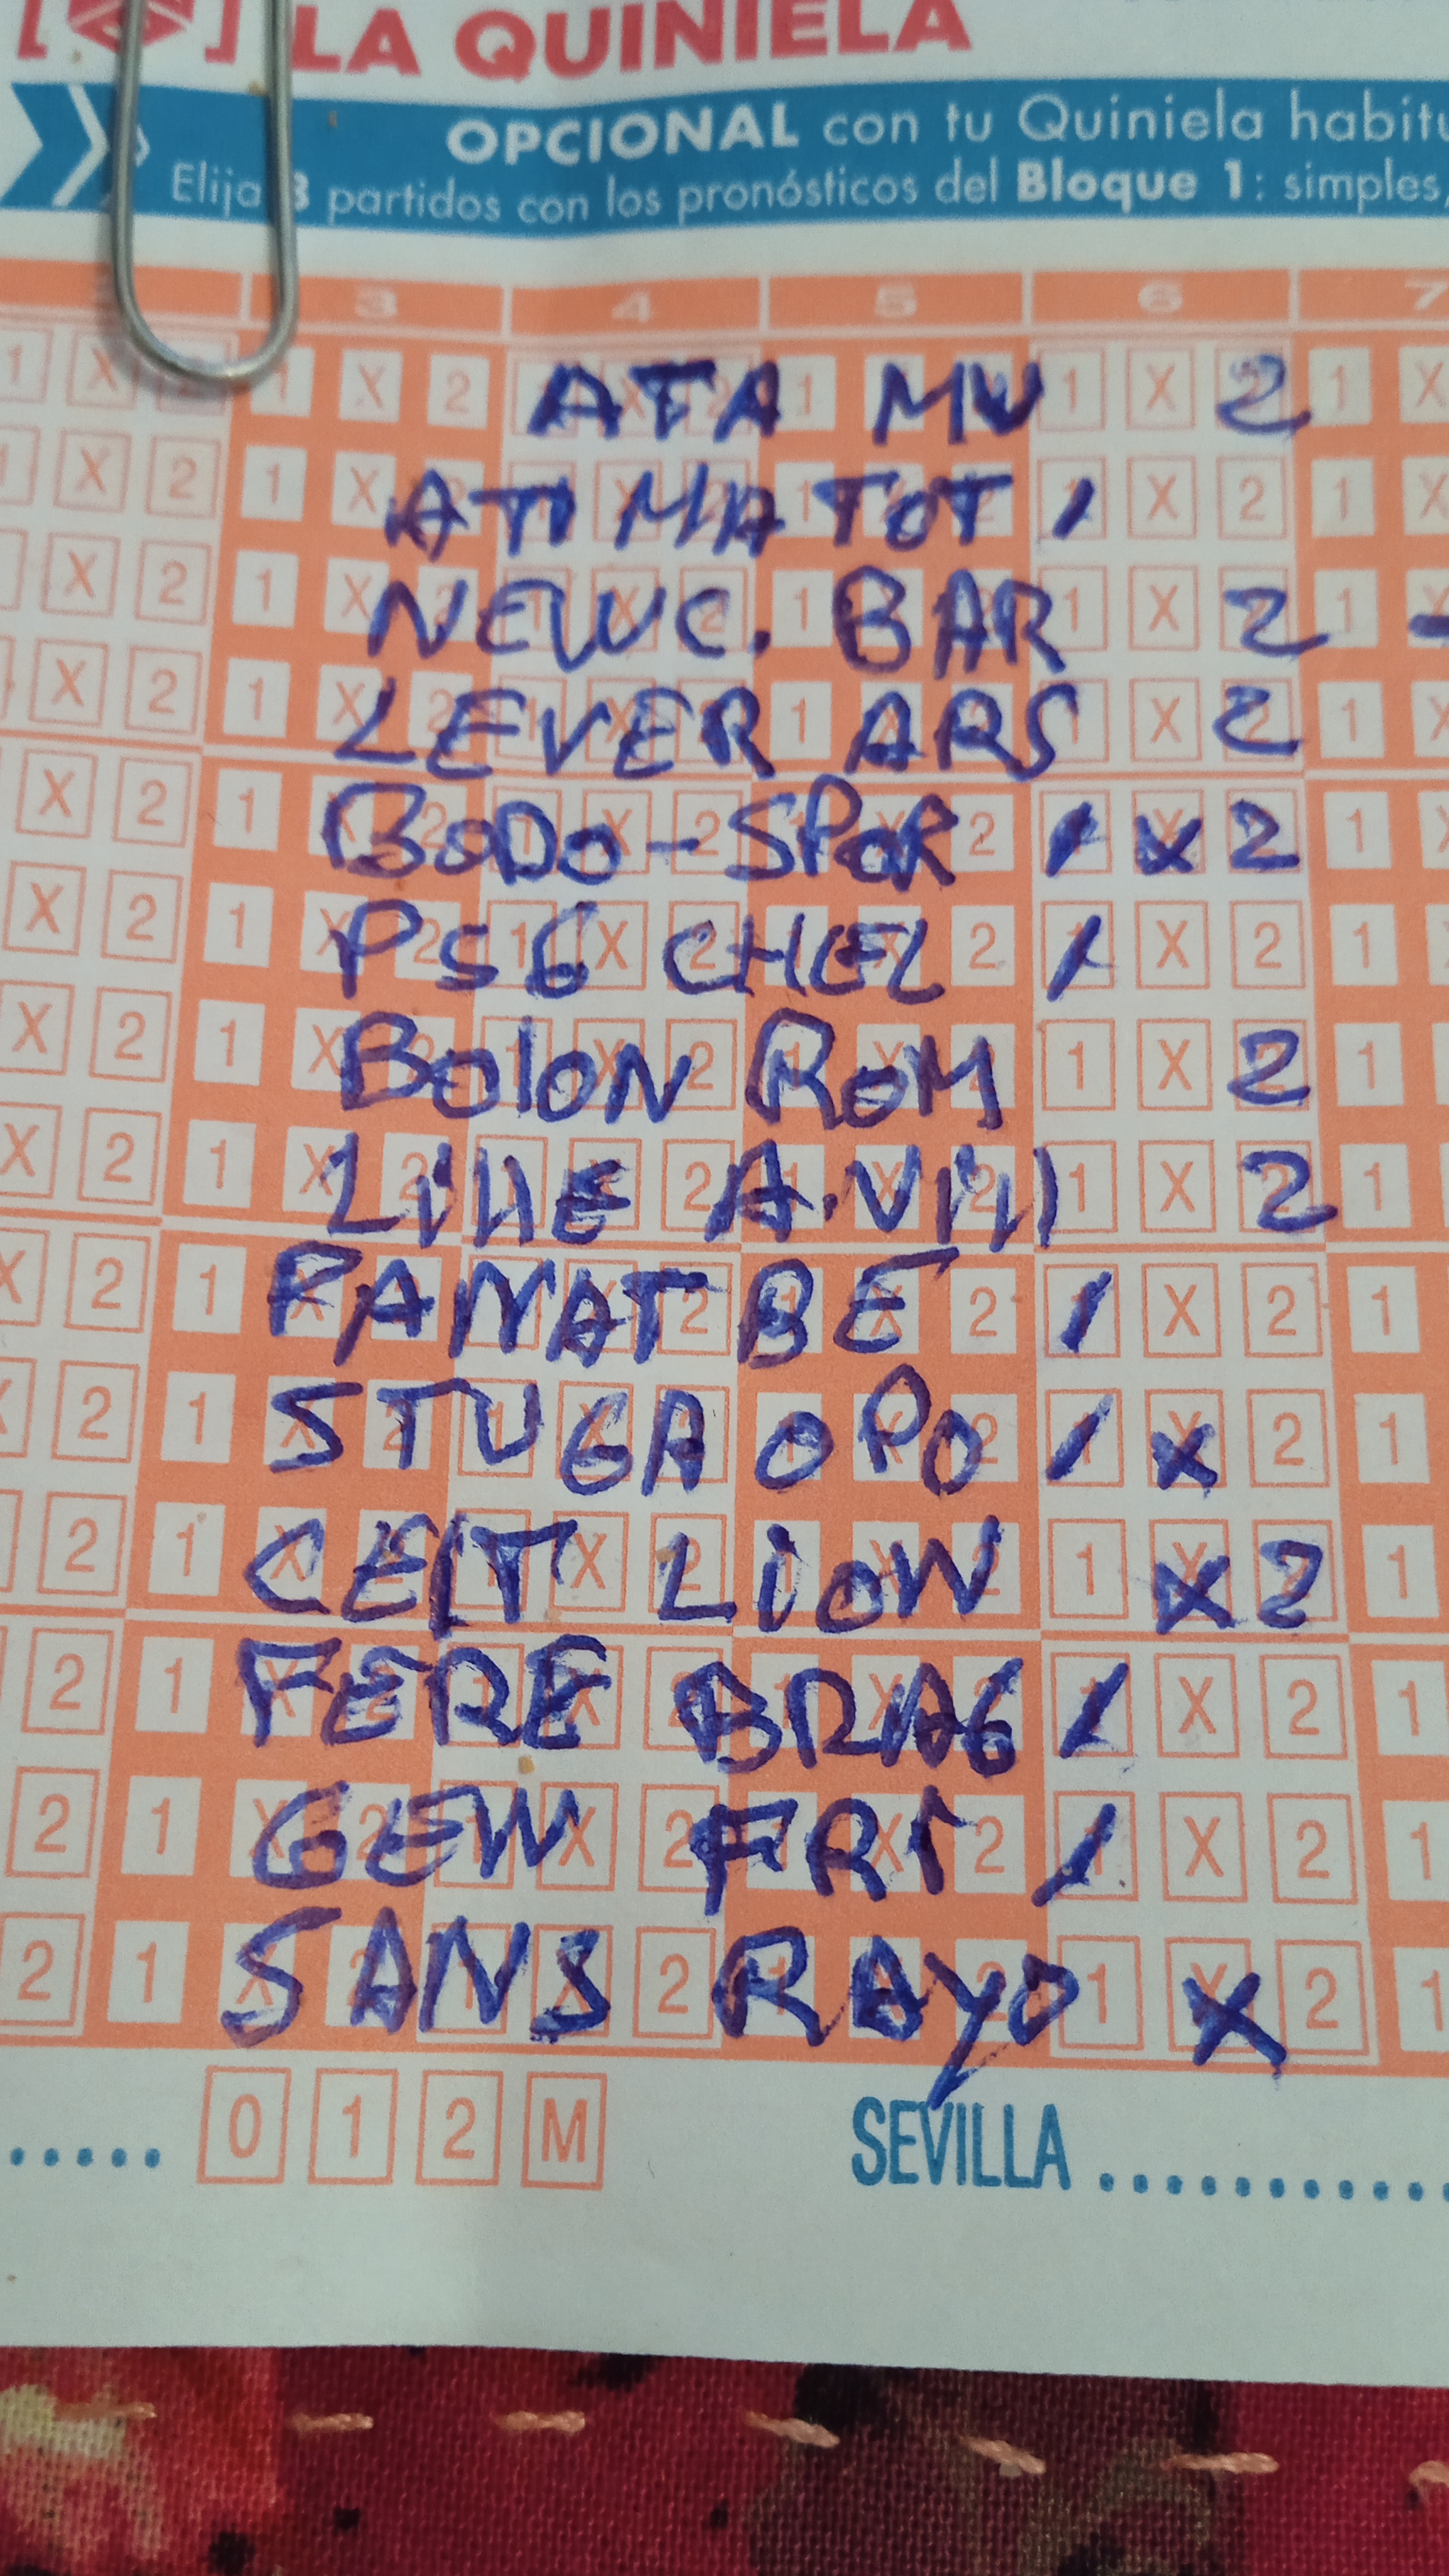 [ ] LA QUINIELA
OPCIONAL con tu Quiniela habitu
Elija 3 partidos con los pronósticos del Bloque 1: simples,
3 4 5 6 7
ATA MU 2
ATI MA TOT 1
NEWC. BAR 2 -
LEVER ARS 2
BODO-SPOR 1 X 2
PSG CHEL 1
BOLON ROM 2
LillE A.Vill 2
PANAT BE 1
STUGA OPO 1 X
CELT LION X 2
FERE BRAG 1
GEN FRI 1
SANS RAYO X
0 1 2 M SEVILLA